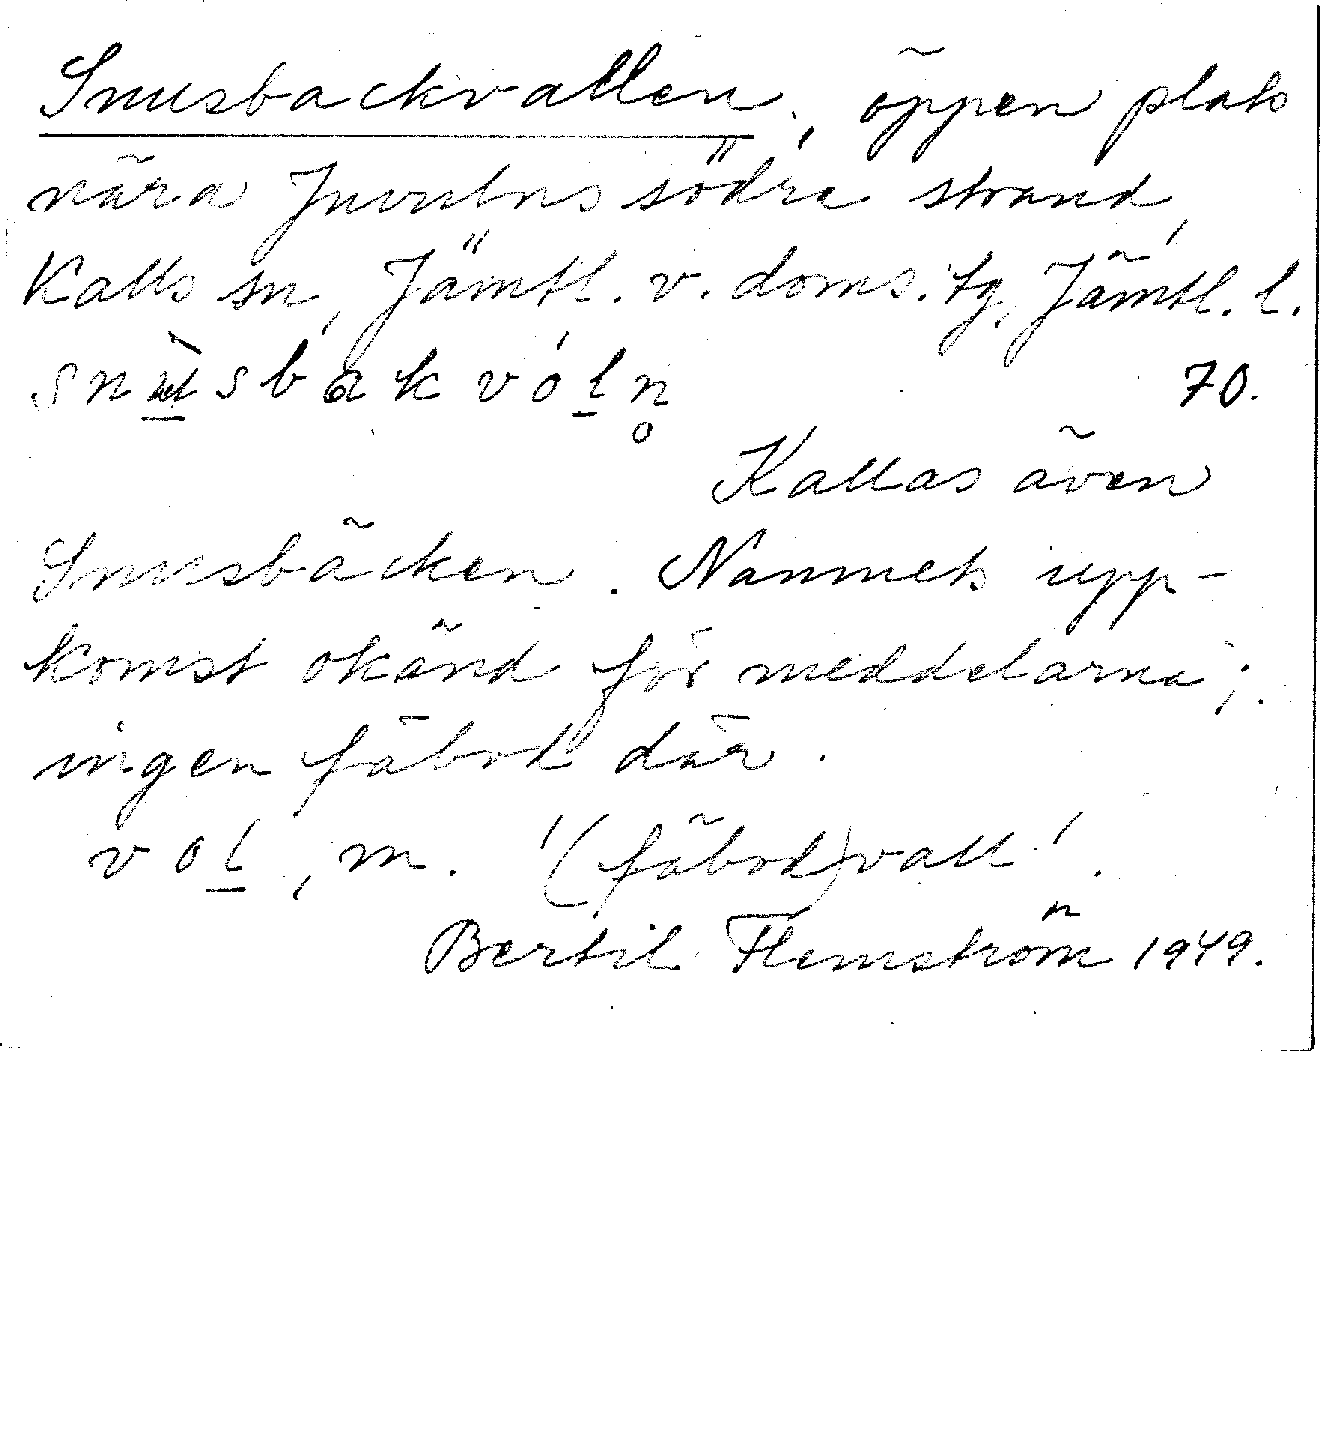 Snusbackvallen, öppen plats
nära Juvulns södra strand,
Kalls sn, Jämtl. v. doms. tg, Jämtl. l.
snùsbakvóln̥ 70.
Kallas även
Snusbäcken. Namnets upp-
komst okänd för meddelarna;
ingen fäbod där.
vol, m. '(fäbod)vall'.
Bertil Flemström 1949.